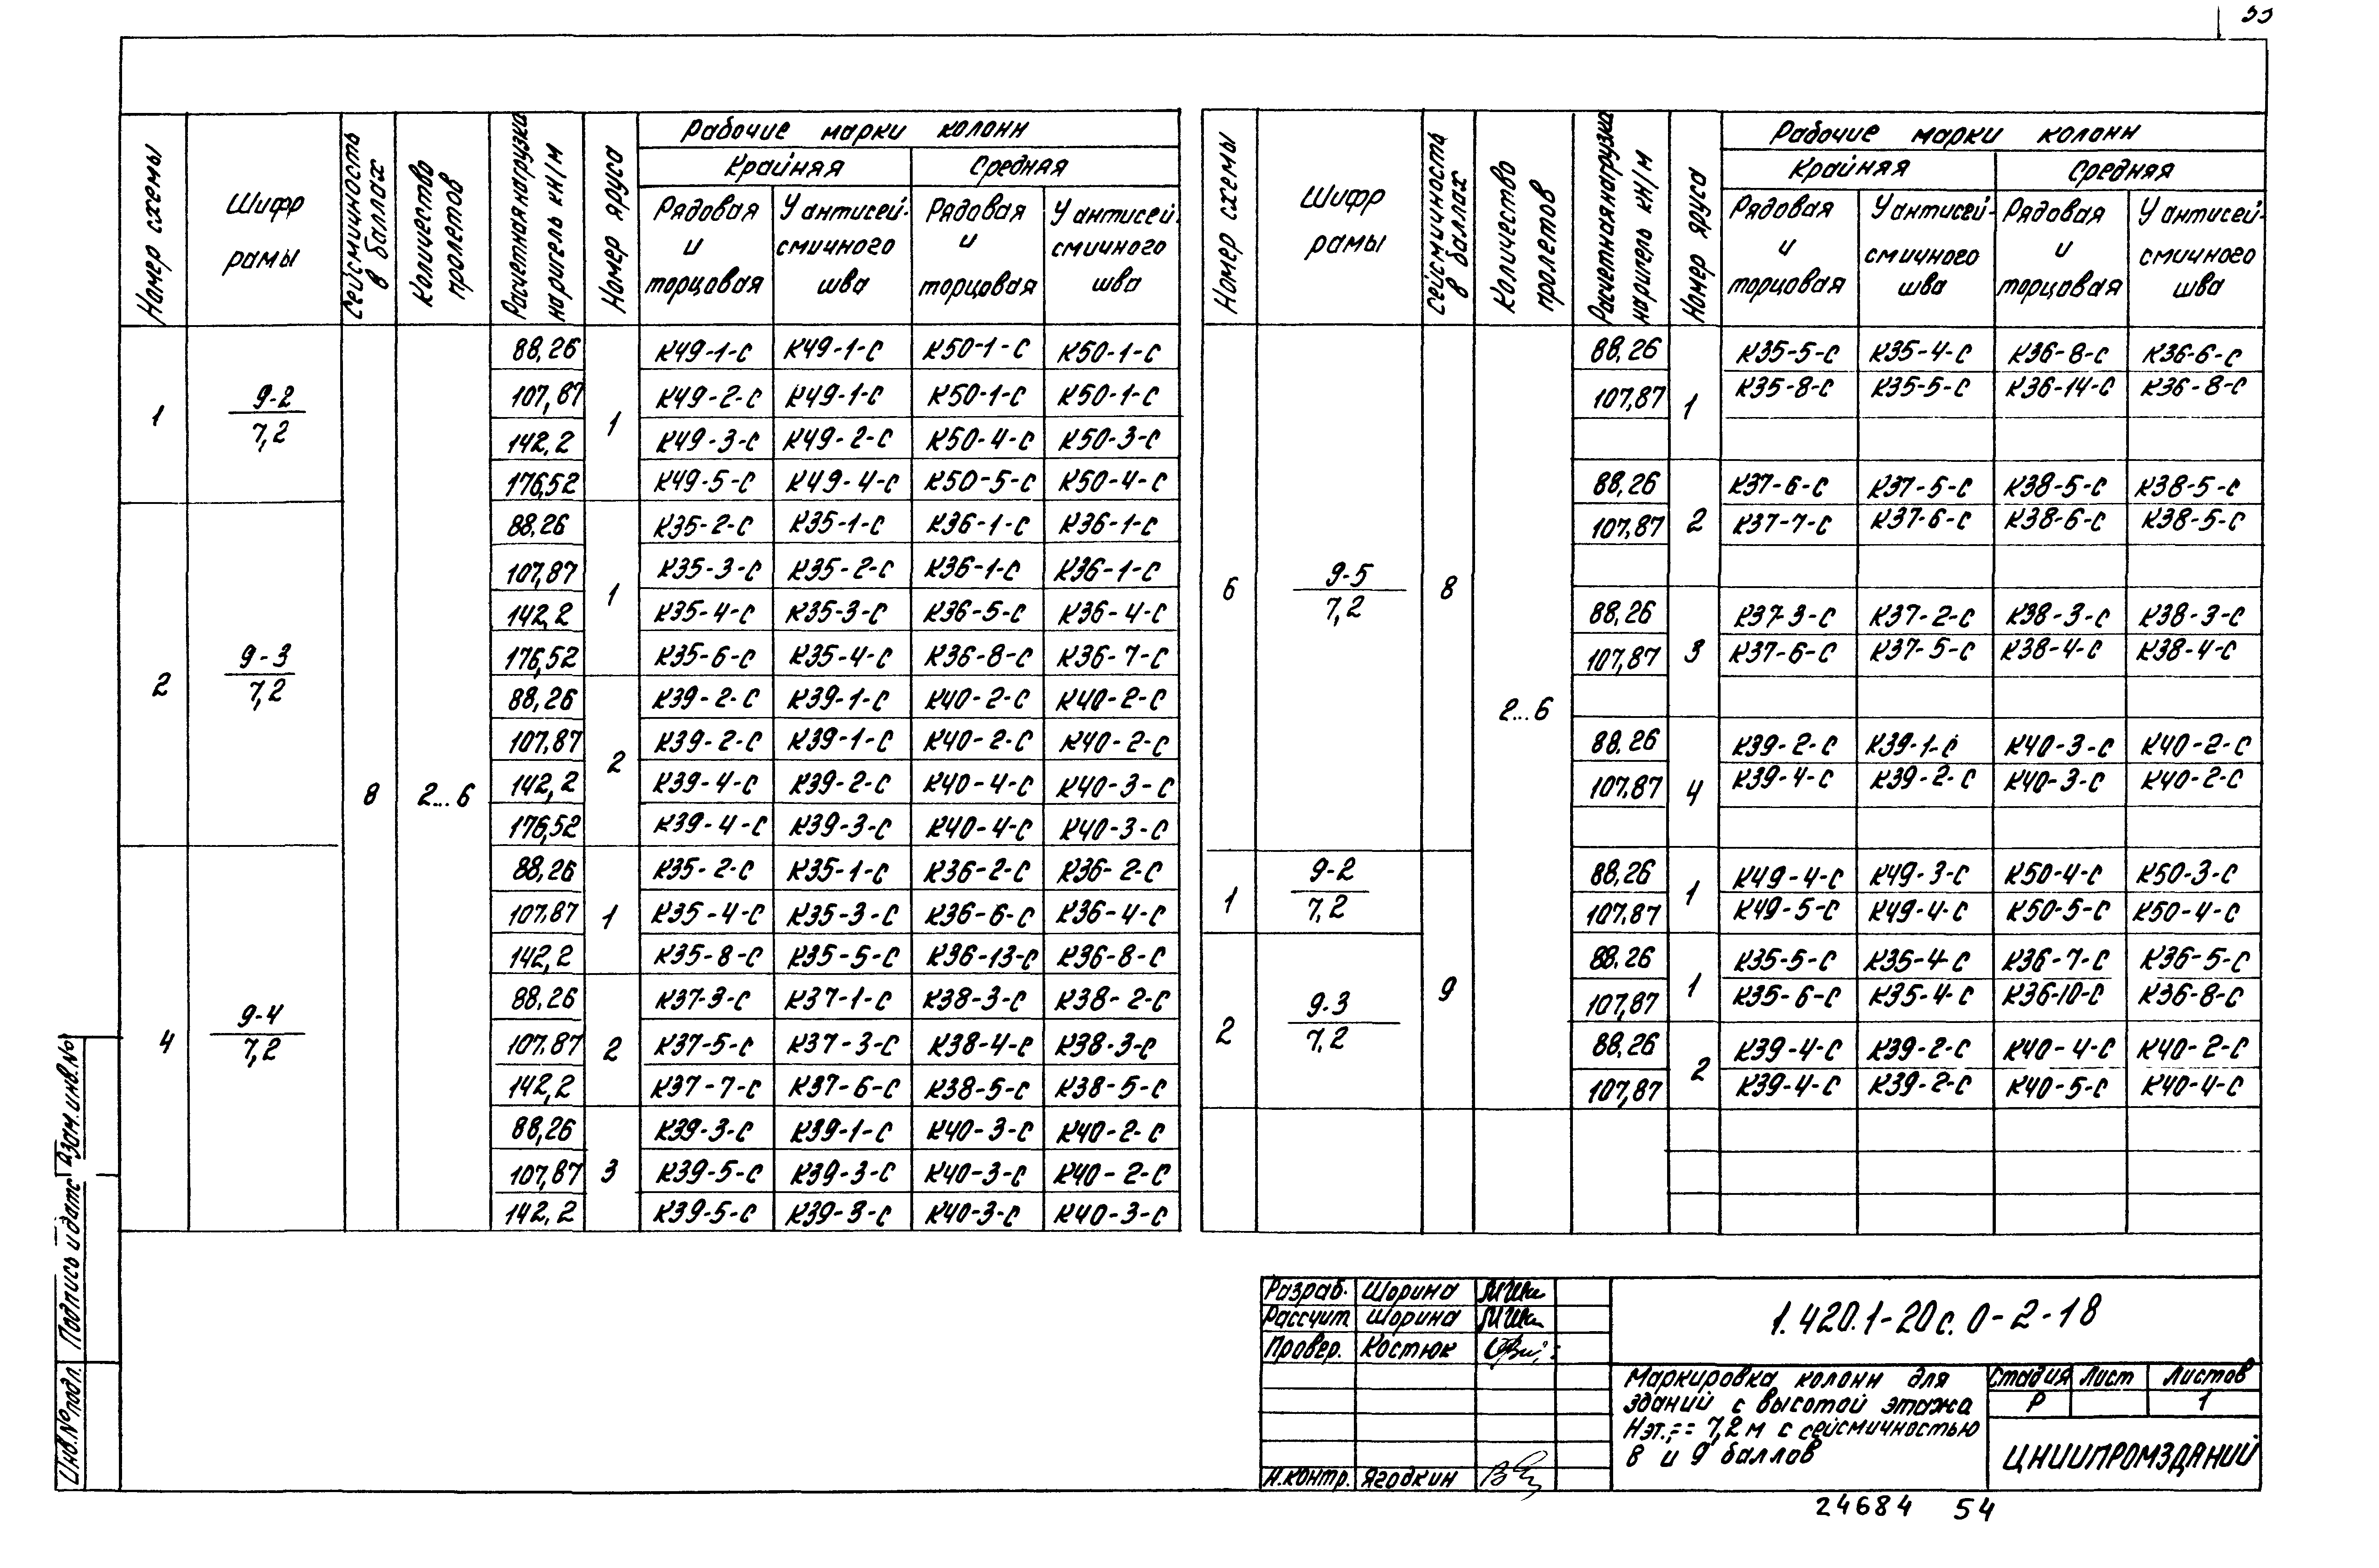 53
Номер схемы
Шифр рамы
Сейсмичность в баллах
Количество пролетов
Расчетная нагрузка на ригель кн/м
Номер яруса
Рабочие марки колонн
Крайняя Средняя
Рядовая и торцовая
У антисейсмичного шва
Рядовая и торцовая
У антисейсмичного шва
1 9-2/7,2 8 2...6
88,26 1 К49-1-С К49-1-С К50-1-С К50-1-С
107,87 К49-2-С К49-1-С К50-1-С К50-1-С
142,2 К49-3-С К49-2-С К50-4-С К50-3-С
176,52 К49-5-С К49-4-С К50-5-С К50-4-С
2 9-3/7,2
88,26 1 К35-2-С К35-1-С К36-1-С К36-1-С
107,87 К35-3-С К35-2-С К36-1-С К36-1-С
142,2 К35-4-С К35-3-С К36-5-С К36-4-С
176,52 К35-6-С К35-4-С К36-8-С К36-7-С
88,26 2 К39-2-С К39-1-С К40-2-С К40-2-С
107,87 К39-2-С К39-1-С К40-2-С К40-2-С
142,2 К39-4-С К39-2-С К40-4-С К40-3-С
176,52 К39-4-С К39-3-С К40-4-С К40-3-С
4 9-4/7,2
88,26 1 К35-2-С К35-1-С К36-2-С К36-2-С
107,87 К35-4-С К35-3-С К36-6-С К36-4-С
142,2 К35-8-С К35-5-С К36-13-С К36-8-С
88,26 2 К37-3-С К37-1-С К38-3-С К38-2-С
107,87 К37-5-С К37-3-С К38-4-С К38-3-С
142,2 К37-7-С К37-6-С К38-5-С К38-5-С
88,26 3 К39-3-С К39-1-С К40-3-С К40-2-С
107,87 К39-5-С К39-3-С К40-3-С К40-2-С
142,2 К39-5-С К39-3-С К40-3-С К40-3-С
Номер схемы
Шифр рамы
Сейсмичность в баллах
Количество пролетов
Расчетная нагрузка на ригель кн/м
Номер яруса
Рабочие марки колонн
Крайняя Средняя
Рядовая и торцовая
У антисейсмичного шва
Рядовая и торцовая
У антисейсмичного шва
6 9-5/7,2 8 2...6
88,26 1 К35-5-С К35-4-С К36-8-С К36-6-С
107,87 К35-8-С К35-5-С К36-14-С К36-8-С
88,26 2 К37-6-С К37-5-С К38-5-С К38-5-С
107,87 К37-7-С К37-6-С К38-6-С К38-5-С
88,26 3 К37-3-С К37-2-С К38-3-С К38-3-С
107,87 К37-6-С К37-5-С К38-4-С К38-4-С
88,26 4 К39-2-С К39-1-С К40-3-С К40-2-С
107,87 К39-4-С К39-2-С К40-3-С К40-2-С
1 9-2/7,2 9
88,26 1 К49-4-С К49-3-С К50-4-С К50-3-С
107,87 К49-5-С К49-4-С К50-5-С К50-4-С
2 9.3/7,2
88,26 1 К35-5-С К35-4-С К36-7-С К36-5-С
107,87 К35-6-С К35-4-С К36-10-С К36-8-С
88,26 2 К39-4-С К39-2-С К40-4-С К40-2-С
107,87 К39-4-С К39-2-С К40-5-С К40-4-С
Взам.инв.№
Подпись и дата
Инв.№ подл.
Разраб. Шорина
Рассчит Шорина
Провер. Костюк
Н.контр. Ягодкин
1.420.1-20с.0-2-18
Маркировка колонн для
зданий с высотой этажа
Нэт.= 7,2м с сейсмичностью
8 и 9 баллов
Стадия Лист Листов
Р 1
ЦНИИПРОМЗДАНИЙ
24684 54